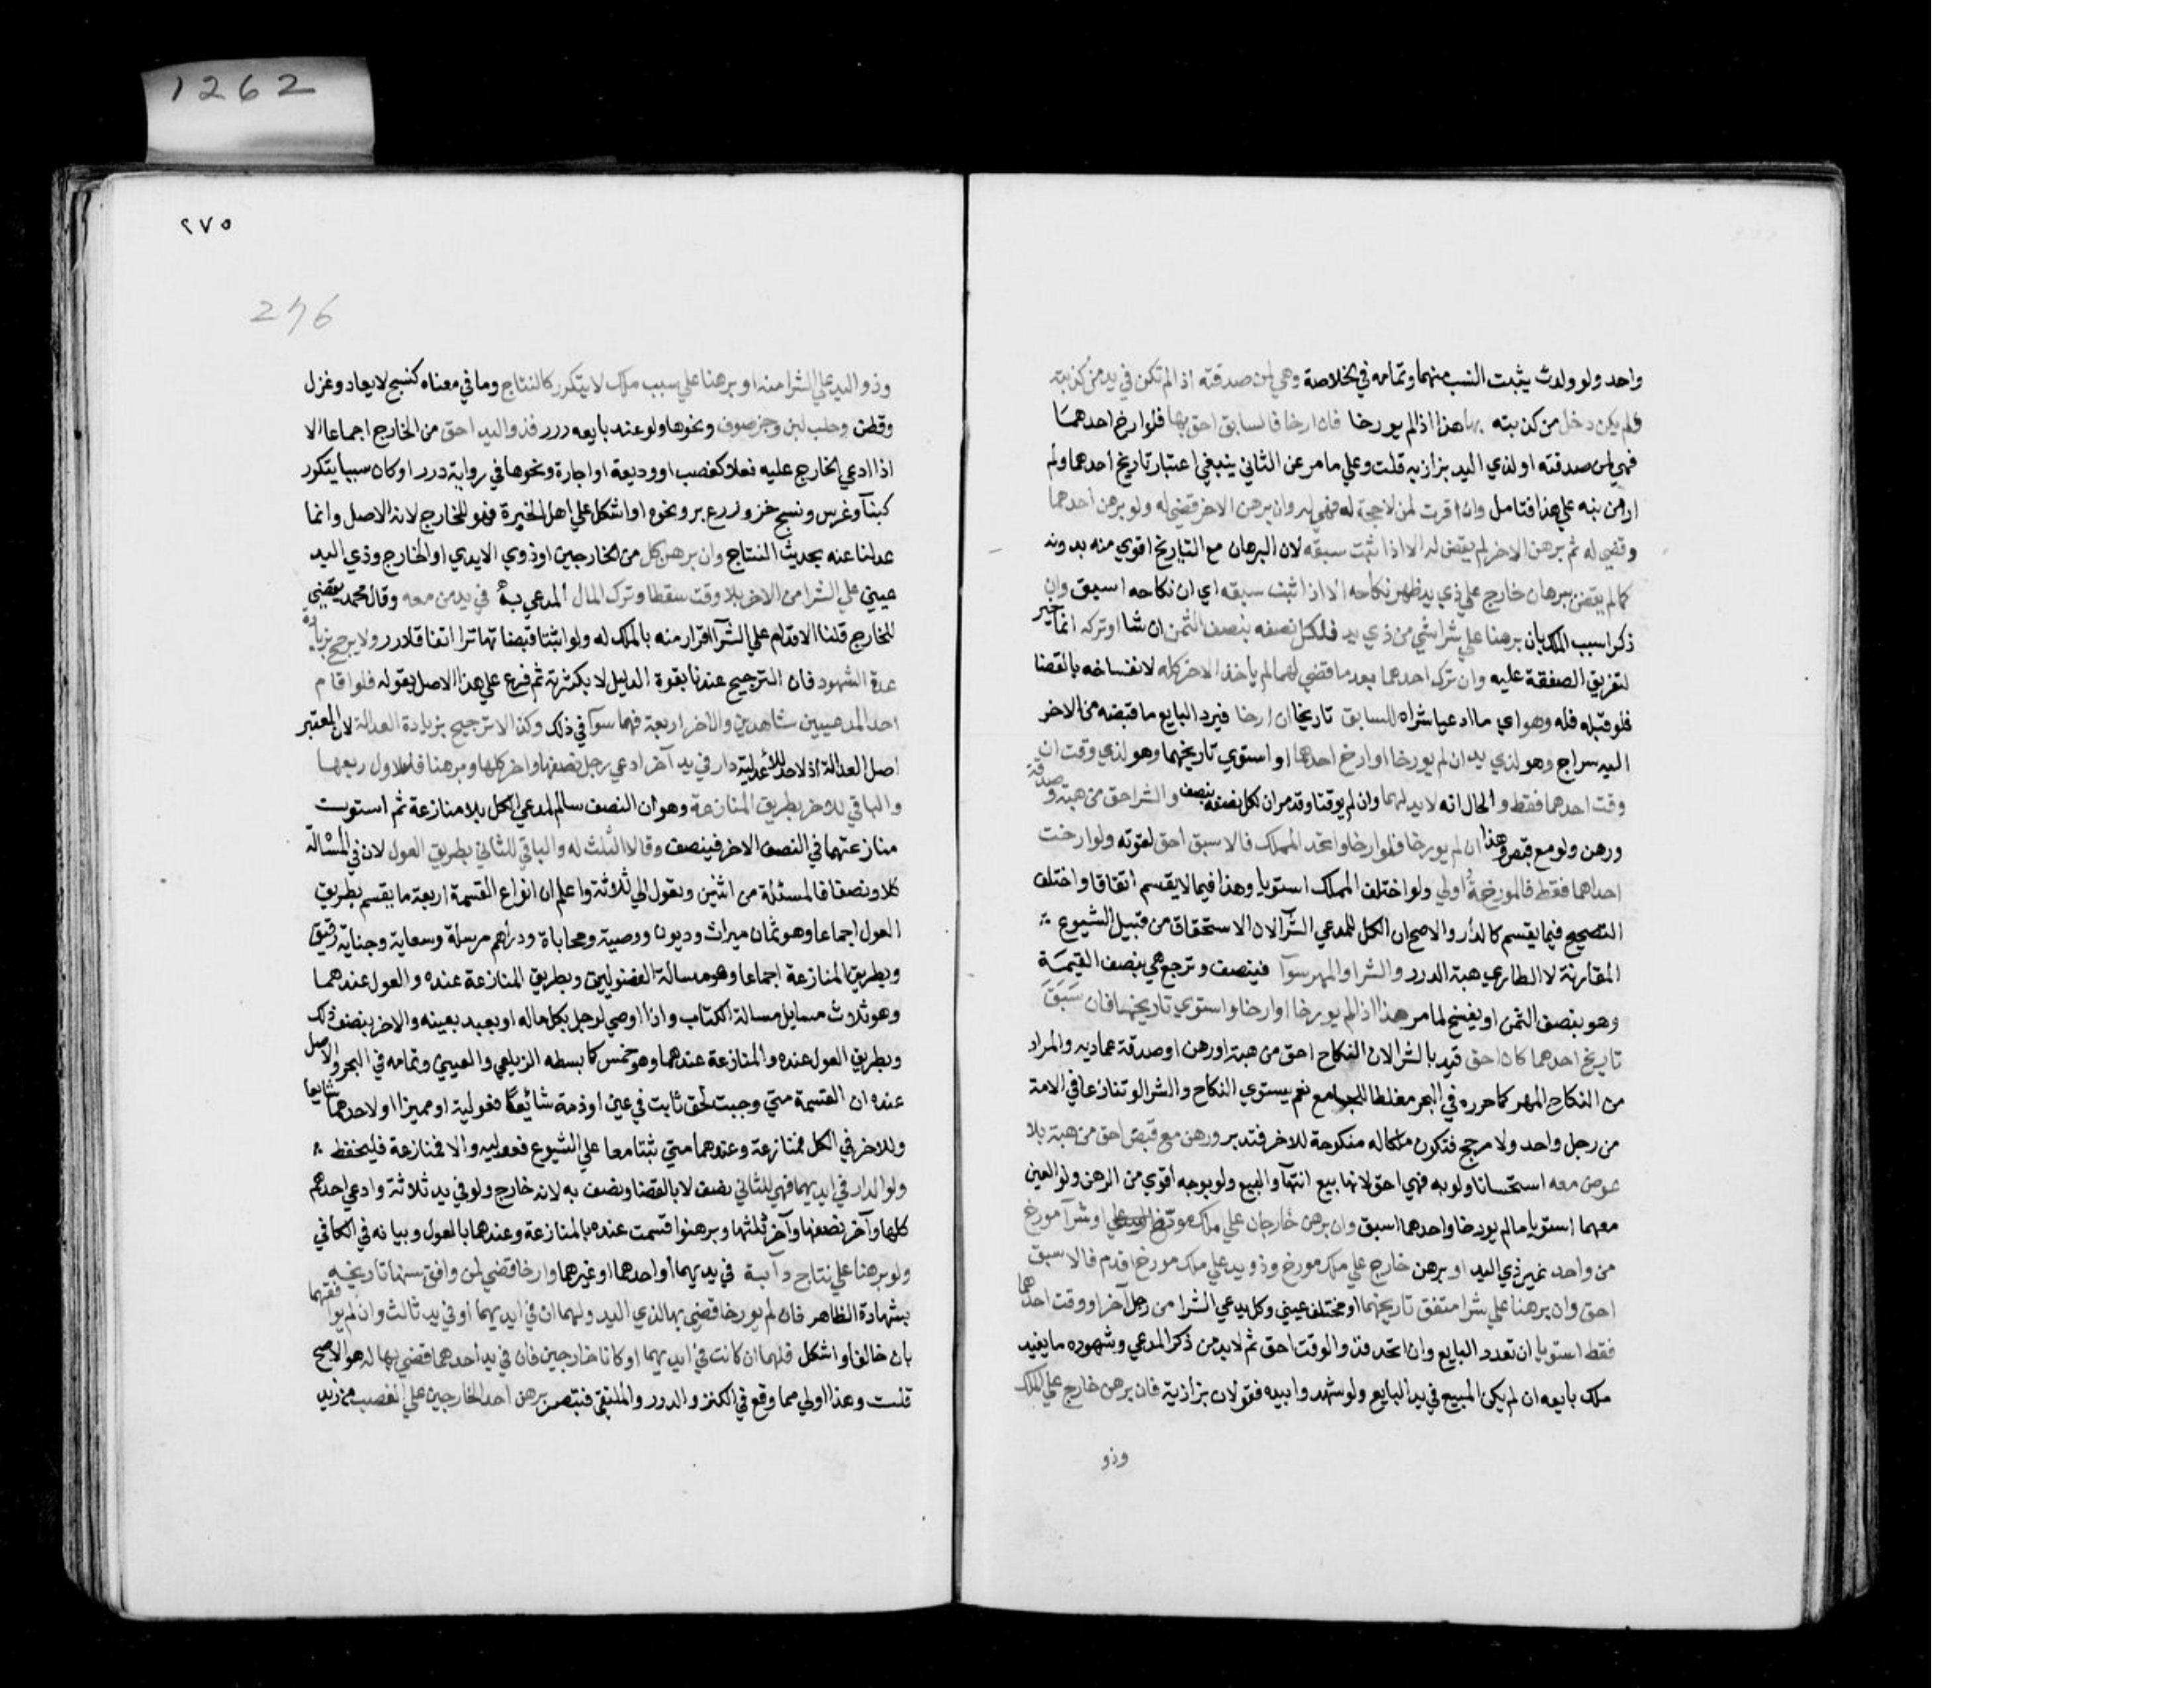 واحد ولو ولدت يثبت النسب منهما وتمامه في الخلاصة وهي لمن صدقته اذا لم تكن في يد من كذبته
ولم يكن دخل من كذبته بها هذا اذا لم يورخا فان ارخا فالسابق احق بها فلو ارخ احدهما
فهي لمن صدقته او لذي اليد بزازيه قلت وعلي ما مر عن الثاني ينبغي اعتبار تاريخ احدهما ولم
ار من نبه علي هذا فتامل وان اقرت لمن لا حجة له فهي له وان برهن الاخر قضي له ولو برهن احدهما
وقضي له ثم برهن الاخر لم يقض له الا اذا ثبت سبقه لان البرهان مع التاريخ اقوي منه بدونه
كما لم يقض ببرهان خارج علي ذي يد ظهر نكاحه الا اذا ثبت سبقه اي ان نكاحه اسبق وان
ذكرا سبب الملك بان برهنا علي شراشي من ذي يد فلكل نصفه بنصف الثمن ان شا او تركه انما خير
لتفريق الصفقة عليه وان ترك احدهما بعد ما قضي لهما لم ياخذ الاخر كله لانفساخه بالقضا
فلو قبله فله وهو اي ما ادعيا شراه للسابق تاريخا ان ارخا فيرد البايع ما قبضه من الاخر
اليه سراج وهو لذي يد ان لم يورخا او ارخ احدهما او استوي تاريخهما وهو لذي وقت ان
وقت احدهما فقط و الحال انه لا يد لهما وان لم يوقتا وقد مر ان لكل نصفه بنصف و الشرا حق من هبة وصدقة
ورهن ولو مع قبض وهذا ان لم يورخا فلو ارخا واتحد المملك فالاسبق احق لقوته ولو ارخت
احداهما فقط فالمورخة اولي ولو اختلف المملك استويا وهذا فيما لا يقسم اتفاقا واختلف
التصحيح فيما يقسم كالدار والاصح ان الكل لمدعي الشرآ لان الاستحقاق من قبيل الشيوع
المقارنة لا الطاري هبة الدرر والشرا والمهر سوآ فينصف وترجع هي بنصف القيمة
وهو بنصف الثمن او يفسخ لما مر هذا اذا لم يورخا او ارخا واستوي تاريخهما فان سبق
تاريخ احدهما كان احق قيد بالشرا لان النكاح احق من هبة او رهن او صدقة عماديه والمراد
من النكاح المهر كما حرره في البحر مغلطا للجامع نعم يستوي النكاح والشرا لو تنازعا في الامة
من رجل واحد ولا مرجح فتكون ملكا له منكوحة للاخر فتدبر ورهن مع قبض احق من هبة بلا
عوض معه استحسانا ولو به فهي احق لانها بيع انتهآ والبيع ولو بوجه اقوي من الرهن ولو العين
معهما استويا ما لم يورخا واحدهما اسبق وان برهن خارجان علي ملك مورخ او شرآ مورخ
من واحد غير ذي اليد او برهن خارج علي ملك مورخ وذو يد علي ملك مورخ اقدم فالاسبق
احق وان برهنا علي شرا متفق تاريخهما او مختلف عيني وكل يدعي الشرا من رجل آخر او وقت احدهما
فقط استويا ان تعدد البايع وان اتحد فذو الوقت احق ثم لا بد من ذكر المدعي وشهوده ما يفيد
ملك بايعه ان لم يكن المبيع في يد البايع ولو شهدوا بيده فقولان بزازية فان برهن خارج علي الملك
وذو
٢٧٥
276
وذو اليد علي الشرا منه او برهنا علي سبب ملك لا يتكرر كالنتاج وما في معناه كنسج لا يعاد وغزل
وقطن وحلب لبن وجز صوف ونحوها ولو عند بايعه درر فذو اليد احق من الخارج اجماعا الا
اذا ادعي الخارج عليه فعلا كغصب او وديعة او اجارة ونحوها في رواية درر او كان سببا يتكرر
كبنآ وغرس ونسج خز وزرع بر ونحوه او اشكل علي اهل الخبرة فهو للخارج لانه الاصل وانما
عدلنا عنه بحديث النتاج وان برهن كل من الخارجين او ذوي الايدي او الخارج وذي اليد
عيني علي الشرا من الاخر بلا وقت سقطا وترك المال المدعي به في يد من معه وقال محمد يقضي
للخارج قلنا الاقدام علي الشرآ اقرار منه بالملك له ولو اثبتا قبضا تهاترا اتفاقا درر ولا يرجح بزيادة
عدة الشهود فان الترجيح عندنا بقوة الدليل لا بكثرته ثم فرع علي هذا الاصل بقوله فلو اقام
احد المدعيين شاهدين والاخر اربعة فهما سوآ في ذلك وكذا لا ترجيح بزيادة العدالة لان المعتبر
اصل العدالة اذ لا حد للأعدلية دار في يد آخر ادعي رجل نصفها واخر كلها وبرهنا فللاول ربعها
والباقي للاخر بطريق المنازعة وهو ان النصف سالم لمدعي الكل بلا منازعة ثم استوت
منازعتهما في النصف الاخر فينصف وقالا الثلث له والباقي للثاني بطريق العول لان في المسالة
كلا ونصفا فالمسئلة من اثنين وتعول الي ثلاثة واعلم ان انواع القسمة اربعة ما يقسم بطريق
العول اجماعا وهو ثمان ميراث وديون ووصية ومحاباة ودراهم مرسلة وسعاية وجناية رقيق
وبطريق المنازعة اجماعا وهو مسالة الفضوليين وبطريق المنازعة عنده والعول عندهما
وهو ثلاث مسايل مسالة الكتاب واذا اوصي لرجل بكل ماله او بعبد بعينه والاخر بنصف ذلك
وبطريق العول عنده والمنازعة عندهما وهو خمس كما بسطه الزيلعي والعيني وتمامه في البحر والاصل
عنده ان القسمة متي وجبت لحق ثابت في عين او ذمة شائعا فعولية او مميزا او لاحدهما شايعا
وللاخر في الكل فمنازعة وعندهما متي ثبتا معا علي الشيوع فعوليه والا فمنازعة فليحفظ
ولو الدار في ايديهما فهي للثاني نصف لا بالقضا ونصف به لانه خارج ولو في يد ثلاثة وادعي احدهم
كلها وآخر نصفها وآخر ثلثها وبرهنوا قسمت عنده بالمنازعة وعندهما بالعول وبيانه في الكافي
ولو برهنا علي نتاج دآبة في يديهما او احدهما او غيرهما وارخا قضي لمن وافق سنها تاريخه
بشهادة الظاهر فان لم يورخا قضي بها لذي اليد ولهما ان في ايديهما او في يد ثالث وان لم يوافقهما
بان خالف او اشكل فلهما ان كانت في ايديهما او كانا خارجين فان في يد احدهما قضي بها له هو الاصح
قلت وهذا اولي مما وقع في الكنز والدرر والملتقي فتبصر برهن احد الخارجين علي الغصب من زيد
1262